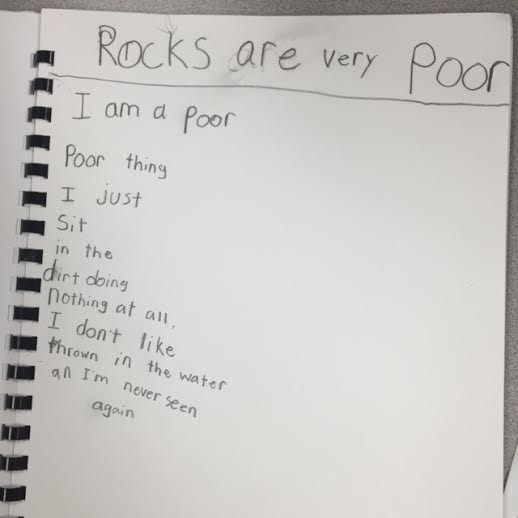 Rocks are very Poor
I am a poor
Poor thing
I just
Sit
in the
dirt doing
nothing at all,
I don't like
thrown in the water
an I'm never seen
again